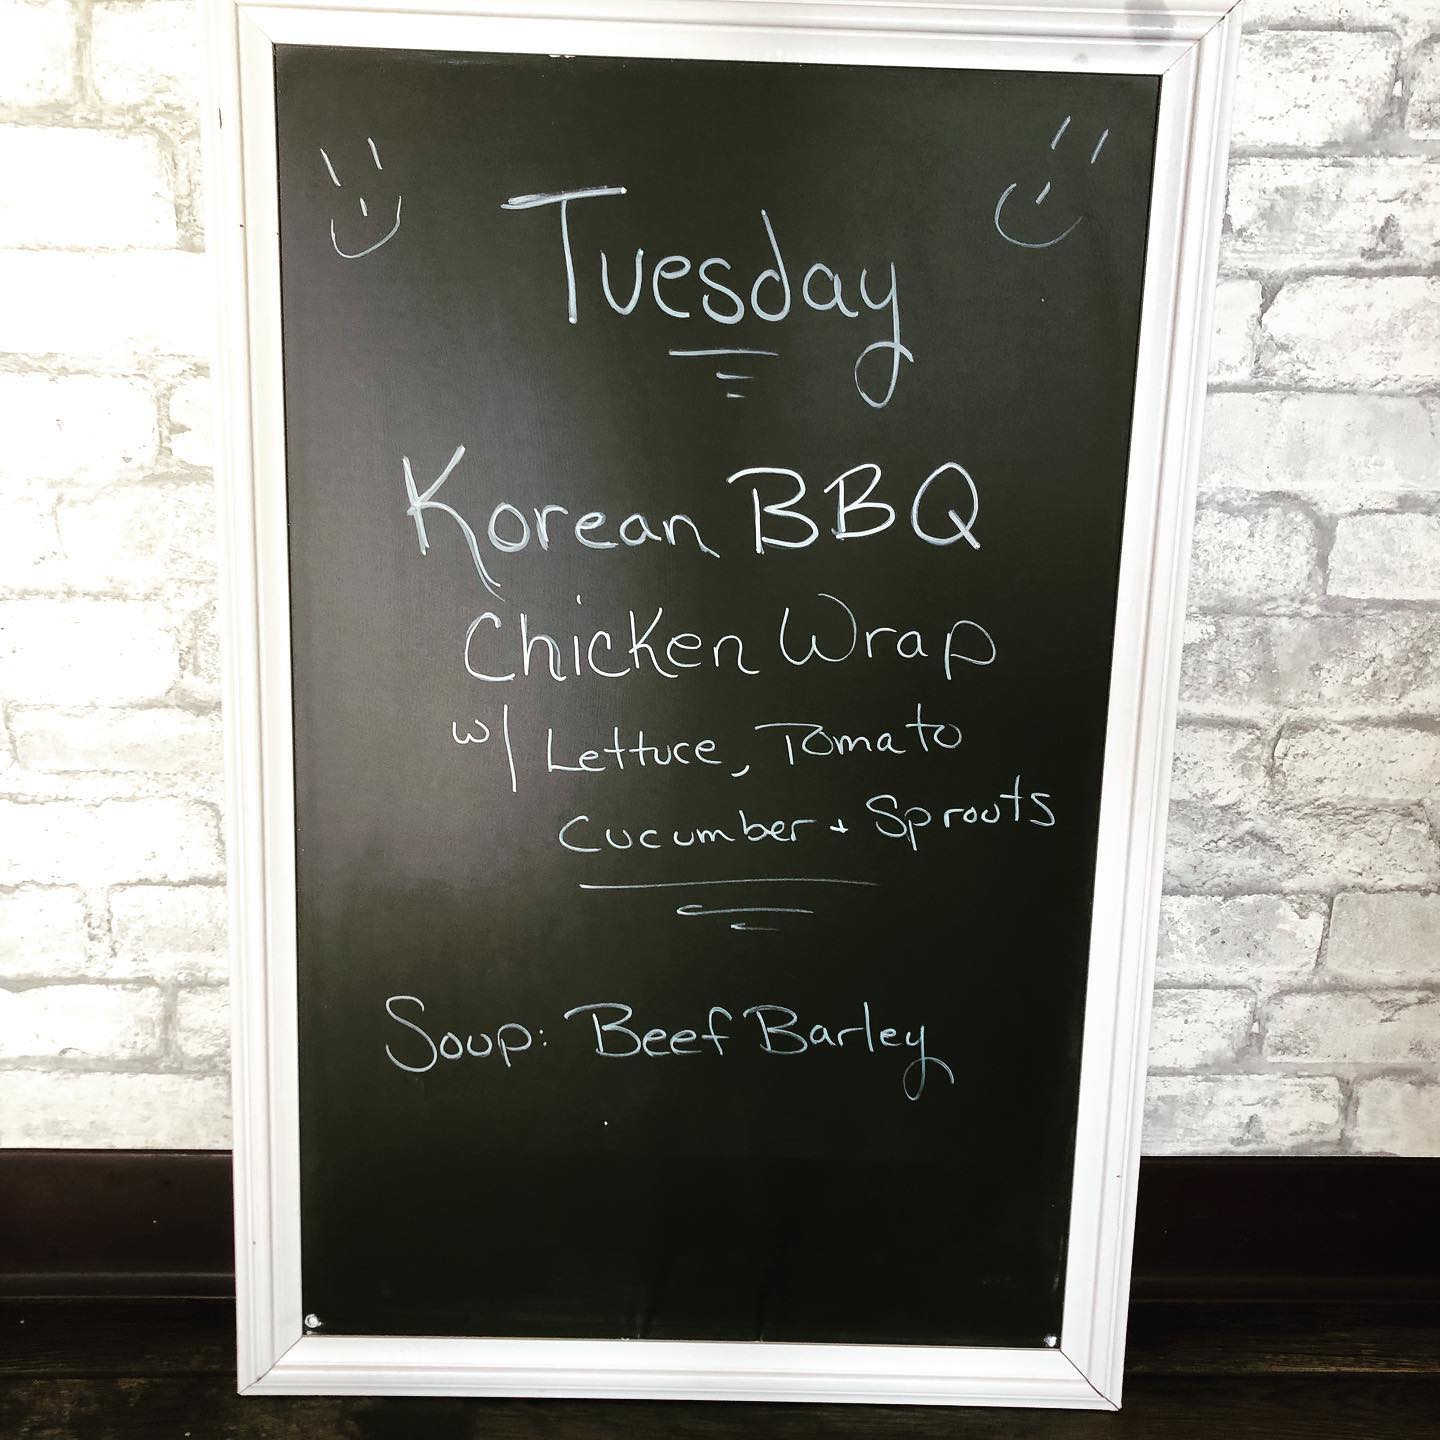 Tuesday
Korean BBQ
Chicken Wrap
w/ Lettuce, Tomato
Cucumber + Sprouts
Soup: Beef Barley